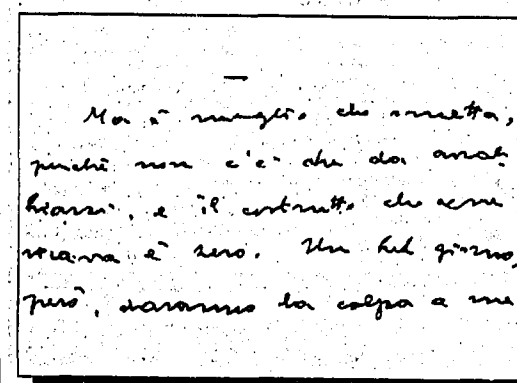 —
Ma è meglio che smetta,
perché non c'è che da arrab
biarsi, e il costrutto che se ne
ricava è zero. Un bel giorno,
però, daranno la colpa a me